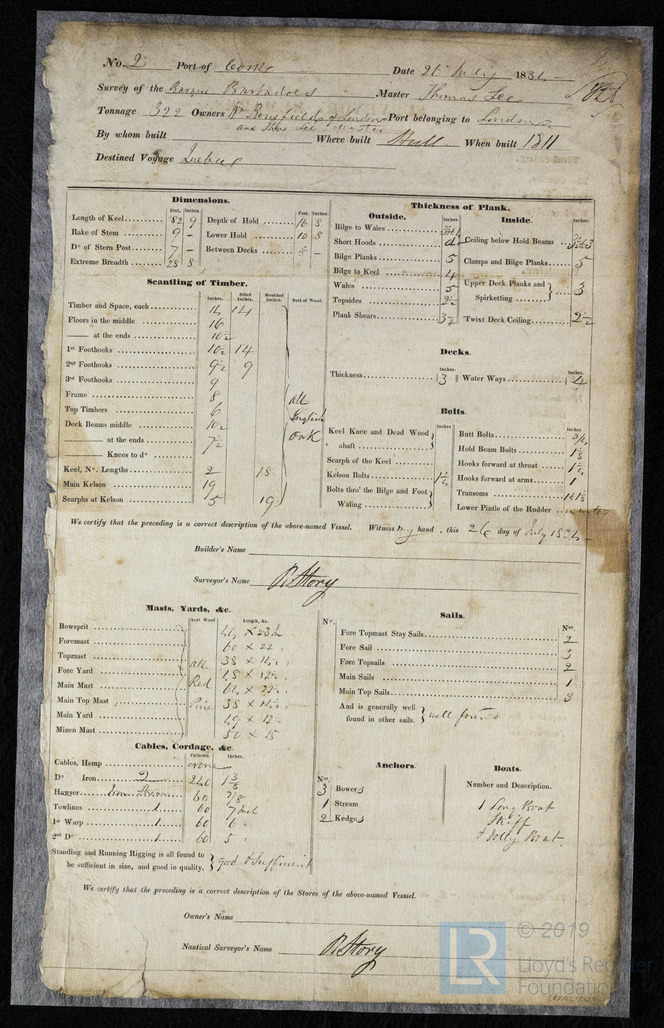 No. 2 Port of Cork Date 26 July 1834
Survey of the Barque Barbadoes Master Thomas Lee
Tonnage 322 Owners Wm Bousfield of London Port belonging to London
and Thos Lee
By whom built Where built Hull When built 1811
Destined Voyage Quebec
Dimensions.
Feet. Inches. Feet. Inches.
Length of Keel 82 9 Depth of Hold 16 8
Rake of Stem 9 - Lower Hold 10 8
Do of Stern Post 7 - Between Decks 6 -
Extreme Breadth 28 8
Scantling of Timber.
Inches. Sided Inches. Moulded Inches. Sort of Wood.
Timber and Space, each 14 14
Floors in the middle 16
—— at the ends 10½
1st Foothooks 10½ 14
2nd Foothooks 9½ 9
3rd Foothooks 9
Frame 8 all
Top Timbers 6 English
Deck Beams middle 10½ Oak
—— at the ends 7½
—— Knees to do
Keel, No. Lengths 2 18
Main Kelson 19
Scarphs at Kelson 5 19
Thickness of Plank.
Outside. Inside.
Inches. Inches.
Bilge to Wales Ceiling below Hold Beams
Short Hoods
Bilge Planks 5 Clamps and Bilge Planks 5
Bilge to Keel 4
Wales 5 Upper Deck Planks and Spirketting 3
Topsides 2½
Plank Shears 3½ 'Twixt Deck Ceiling 2½
Decks.
Inches. Inches.
Thickness 3 Water Ways 4
Bolts.
Inches. Inches
Keel Knee and Dead Wood abaft Butt Bolts 3/4
Scarph of the Keel Hold Beam Bolts 1⅛
Kelson Bolts 1¼ Hooks forward at throat 1¼
Bolts thro' the Bilge and Foot Waling Hooks forward at arms 1
Transoms 1&1⅛
Lower Pintle of the Rudder
We certify that the preceding is a correct description of the above-named Vessel. Witness my hand, this 26 day of July 1834
Builder's Name
Surveyor's Name R Story
Masts, Yards, &c.
Sort Wood Length, &c.
Bowsprit
Foremast 60 x 22
Topmast all 38 x 14
Fore Yard Red
Main Mast
Main Top Mast Pine 38 x 14
Main Yard 49 x 12
Mizen Mast 50 x 15
Cables, Cordage, &c
Fathoms. Inches.
Cables, Hemp none
Do Iron 2 240 1⅜
Hawser 60 7/8
Towlines 1 60 7 Inch
1st Warp 1 60 6
2nd Do 1 60 5
Standing and Running Rigging is all found to
be sufficient in size, and good in quality. good & Sufficient
Sails.
No. Nos.
Fore Topmast Stay Sails 2
Fore Sail 3
Fore Topsails 2
Main Sails 1
Main Top Sails 3
And is generally well
found in other sails. well found
Anchors.
Nos.
3 Bowers
1 Stream
2 Kedges
Boats.
Number and Description.
1 Long Boat
Skiff
& Jolly Boat
We certify that the preceding is a correct description of the Stores of the above-named Vessel.
Owner's Name
Nautical Surveyor's Name R Story
LR
© 2019
Lloyd's Register
Foundation